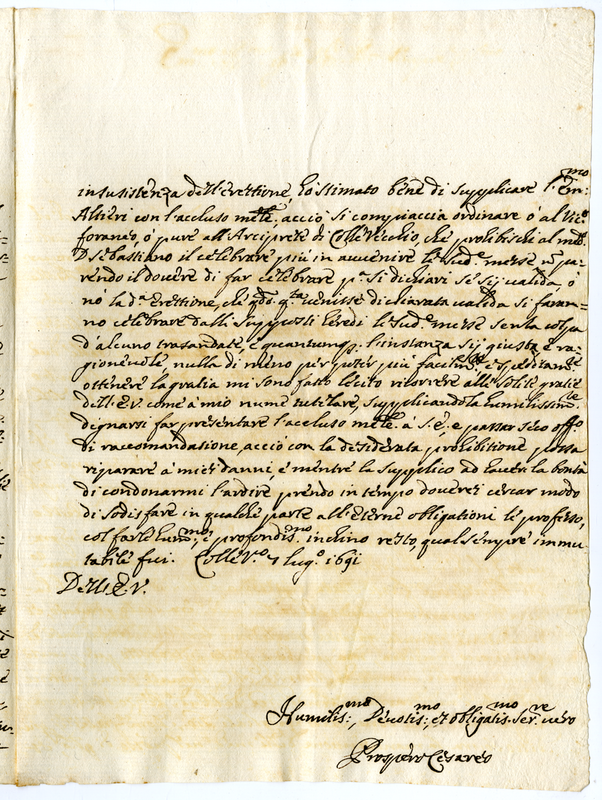 insusistenza dell'erettione, hò stimato bene di supplicare l'Em.mo
Altieri con l'acluso mle, acciò si compiaccia ordinare ò al Vic.o
foraneo, ò pure all'Arciprete di Colle Vecchio, che prohibischi al md.o
D. Sebastiano il celebrare più in avvenire le sud.e messe
rendo il dovere di far celebrare p.a si dichiari se sij valida, ò
nò la d.a erettione, che q.do q.ta venisse dichiarata valida si faran=
no celebrare dalli supposti heredi le sud.e messe senza colpa
d'alcuno trasandate, e quantunq; l'instanza sij giusta e ra=
gionevole, nulla di meno per poter più facilm.te, e speditam.te
ottenere la gratia mi sono fatto lecito ricorrere alle solite gratie
dell'E.V. come à mio nume tutelare, supplicandola humilissim.te
dignarsi far presentare l'acluso mle à S.E., e passar seco offo
di raccomandatione, acciò con la desiderata prohibitione possa
riparare à miei danni, e mentre la supplico ad haver la bontà
di condonarmi l'ardire prendo in tempo doverei cercar modo
di sodisfare in qualche parte all'eterne obligationi le professo,
col farle hum.mo, e profondis.mo inchino resto, qual sempre immu
tabile fui. Colle V.o 7 lug.o 1691
Dell'E.V.
Humilis.mo, Devotis.mo, et obligatis.mo Ser.re vero
Prospero Cesareo